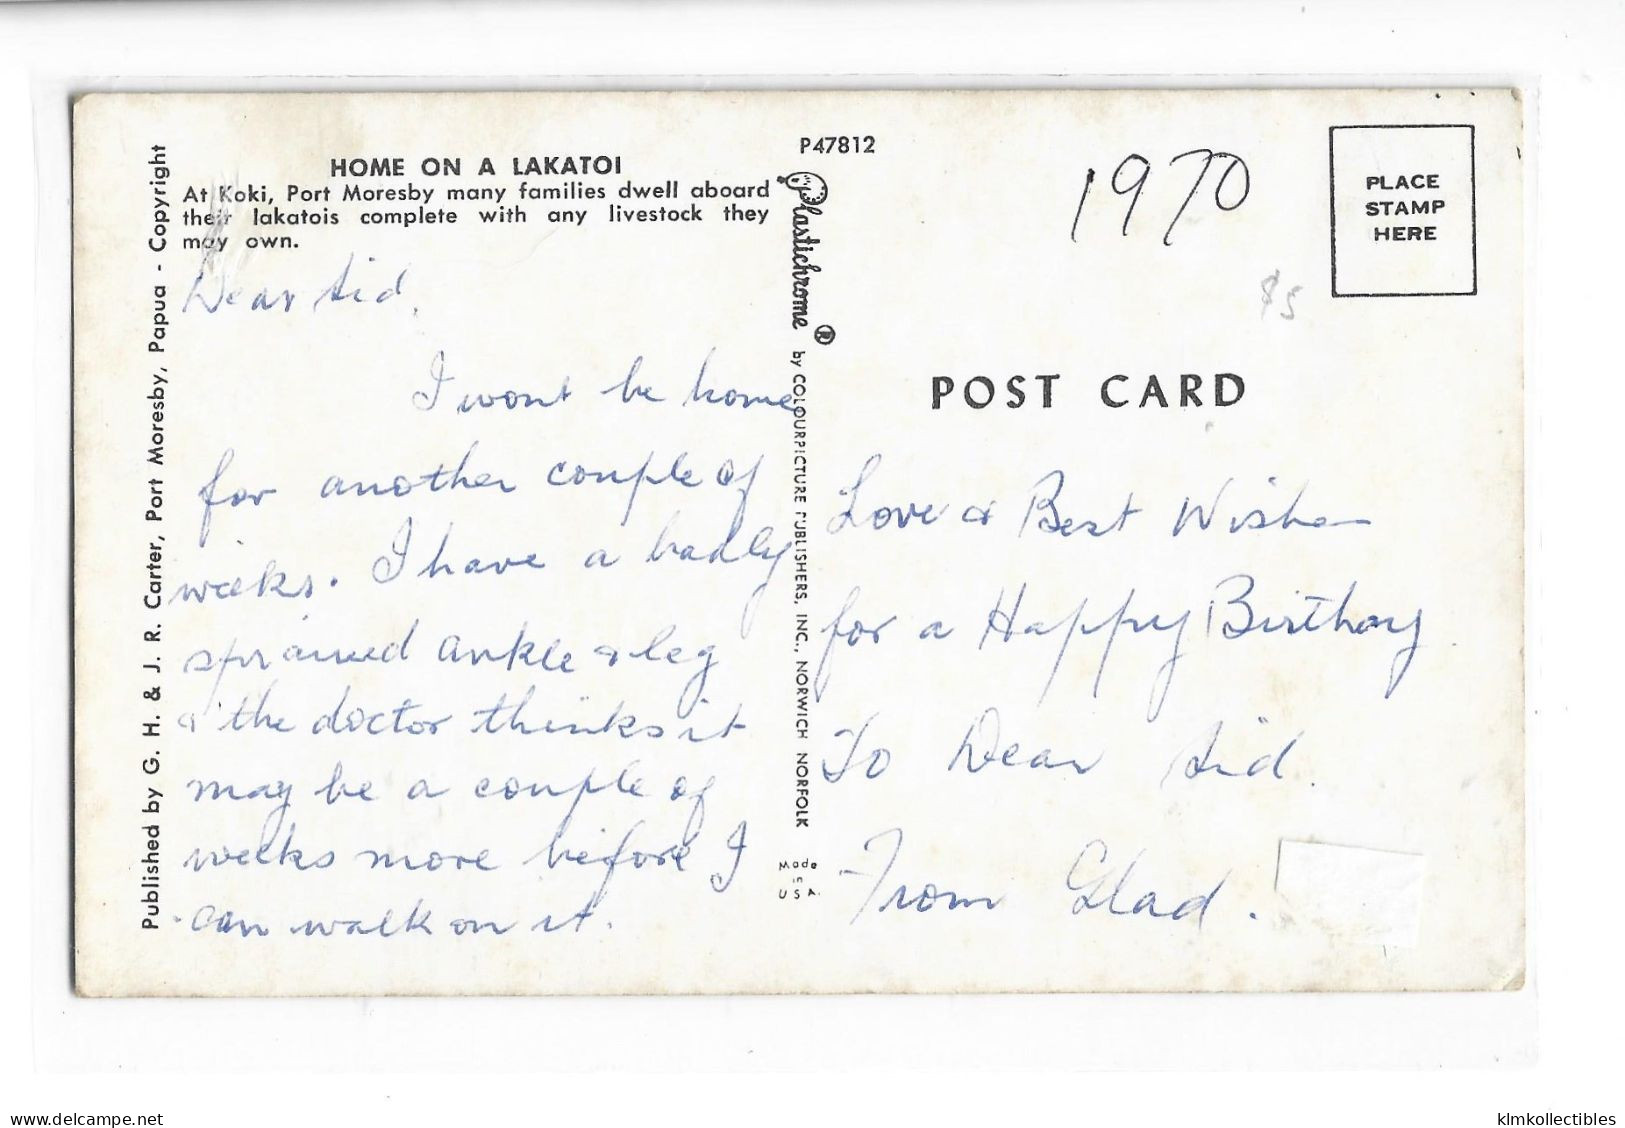 HOME ON A LAKATOI
At Koki, Port Moresby many families dwell aboard
their lakatois complete with any livestock they
may own.
Dear Sid,
I wont be home
for another couple of
weeks. I have a badly
sprained ankle & leg
& the doctor thinks it
may be a couple of
weeks more before I
can walk on it.
Published by G. H. & J. R. Carter, Port Moresby, Papua - Copyright
P47812
Plastichrome ® by COLOURPICTURE PUBLISHERS, INC., NORWICH NORFOLK
Made
in
USA
1970
PLACE
STAMP
HERE
$5
POST CARD
Love & Best Wishes
for a Happy Birthday
To Dear Sid.
From Glad.
delcampe.net
kimkollectibles